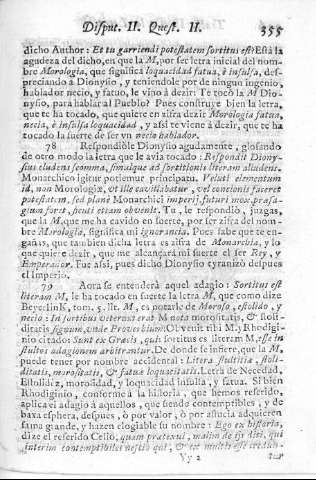 Disput. II. Quest. II. 355
dicho Author: Et tu garriendi potestatem sortitus est? Está la
agudeza del dicho, en que la M, por ser letra inicial del nom-
bre Morologia, que significa loquacidad fatua, è insulsa, des-
preciando à Dionysio, y teniendole por de ningun ingenio,
hablador necio, y fatuo, le vino à dezir: Te tocò la M Dio-
nysio, para hablar al Pueblo? Pues construye bien la letra,
que te ha tocado, que quiere en cifra dezir Morologia fatua,
necia, è insulsa loquacidad, y assi te viene à dezir, que te ha
tocado la suerte de ser un necio hablador.
78 Respondióle Dionysio agudamente, glosando
de otro modo la letra que le avia tocado: Respondit Diony-
sius eludens scomma, simulque ad sortitionis literam aludens.
Monarchico igitur potiemur principatu. Veluti elementum
id, non Morologiæ, ut ille cavillabatur, vel concionis faceret
potestatem, sed planè Monarchici imperij futuri mox præsa-
gium foret, sicuti etiam obvenit. Tu, le respondiò, juzgas,
que la M, que me ha cavido en suerte, por ser cifra del nom-
bre Morologia, significa mi ignorancia. Pues sabe que te en-
gañas, que tambien dicha letra es cifra de Monarchia, y lo
que quiere dezir, que me alcançarà mi suerte el ser Rey, y
Emperador. Fue assi, pues dicho Dionysio cyranizò despues
el Imperio.
79 Aora se entenderà aquel adagio: Sortitus est
literam M, le ha tocado en suerte la letra M, que como dize
Beyerlink, tom. 5. lit. M, es notale de Moroso, estolido, y
necio: In sortibus veterum erat M nota morositatis, & stoli-
ditatis signum, unde Proverbium: Obvenit tibi M. y Rhodigi-
nio citado Sunt ex Græcis, qui sortitus es literam M, esse in
stultos adagionem arbitrantur. De donde se infiere, que la M,
puede tener por nombre accidental: Litera stultitia, stoli-
ditatis, morositatis, & fatuæ loquacitatis. Letra de Necedad,
Estolidéz, morosidad, y loquacidad insulsa, y fatua. Si bien
Rhodiginio, conforme à la historia, que hemos referido,
aplica el adagio à aquellos, que siendo contemptibles, y de
baxa esphera, despues, ò por valor, ò por astucia adquieren
fama grande, y hazen elogiable su nombre: Ego ex historia,
dize el referido Celio, quam pratexui, malim de ijs dici, qui
interim contemptibiles nescio qui, & ex multis esse creduntur
Yy 2